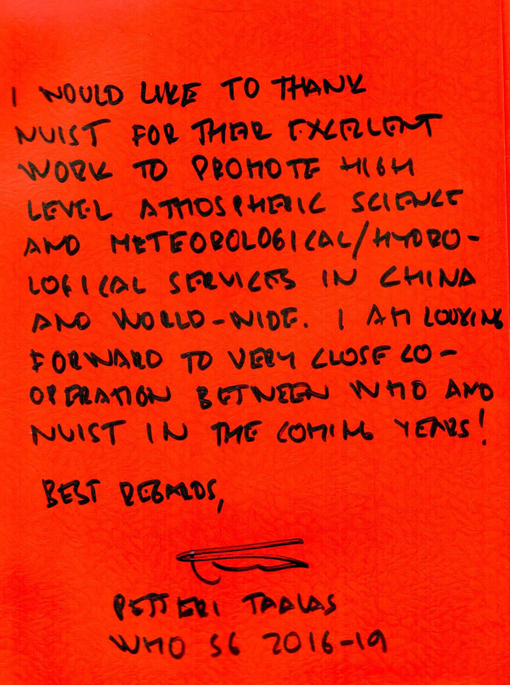 I WOULD LIKE TO THANK
NUIST FOR THEIR EXCELLENT
WORK TO PROMOTE HIGH
LEVEL ATMOSPHERIC SCIENCE
AND METEOROLOGICAL/HYDRO-
LOGICAL SERVICES IN CHINA
AND WORLD-WIDE. I AM LOOKING
FORWARD TO VERY CLOSE CO-
OPERATION BETWEEN WMO AND
NUIST IN THE COMING YEARS!
BEST REGARDS,
PETTERI TAALAS
WMO SG 2016-19